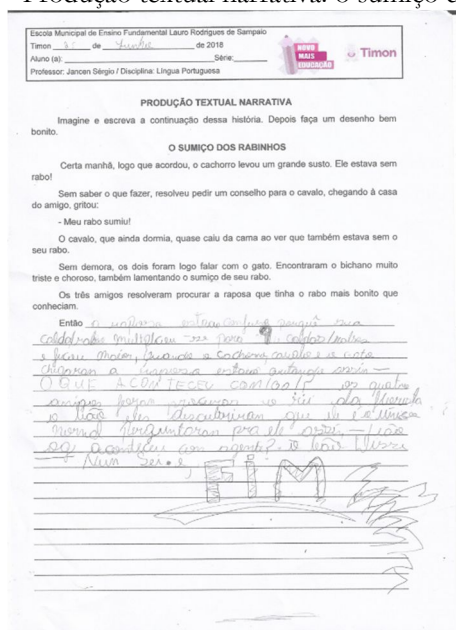 Produção textual narrativa: o sumiço d
Escola Municipal de Ensino Fundamental Lauro Rodrigues de Sampaio
Timon de Junho de 2018
Aluno (a): Série:
Professor: Jancen Sérgio / Disciplina: Língua Portuguesa
NOVO
MAIS
EDUCAÇÃO
Timon
PRODUÇÃO TEXTUAL NARRATIVA
Imagine e escreva a continuação dessa história. Depois faça um desenho bem
bonito.
O SUMIÇO DOS RABINHOS
Certa manhã, logo que acordou, o cachorro levou um grande susto. Ele estava sem
rabo!
Sem saber o que fazer, resolveu pedir um conselho para o cavalo, chegando à casa
do amigo, gritou:
- Meu rabo sumiu!
O cavalo, que ainda dormia, quase caiu da cama ao ver que também estava sem o
seu rabo.
Sem demora, os dois foram logo falar com o gato. Encontraram o bichano muito
triste e choroso, também lamentando o sumiço de seu rabo.
Os três amigos resolveram procurar a raposa que tinha o rabo mais bonito que
conheciam.
Então a raposa
para 9
e ficou maior, quando o cachorro, cavalo e o gato
a raposa estava assim —
O QUE ACONTECEU COM os quatro
amigos rei da floresta
o leão eles descobriram que ele é o único
normal perguntaram pra ele assim, — leão
oq aconteceu com agente? o leão
— Num sei.
FIM